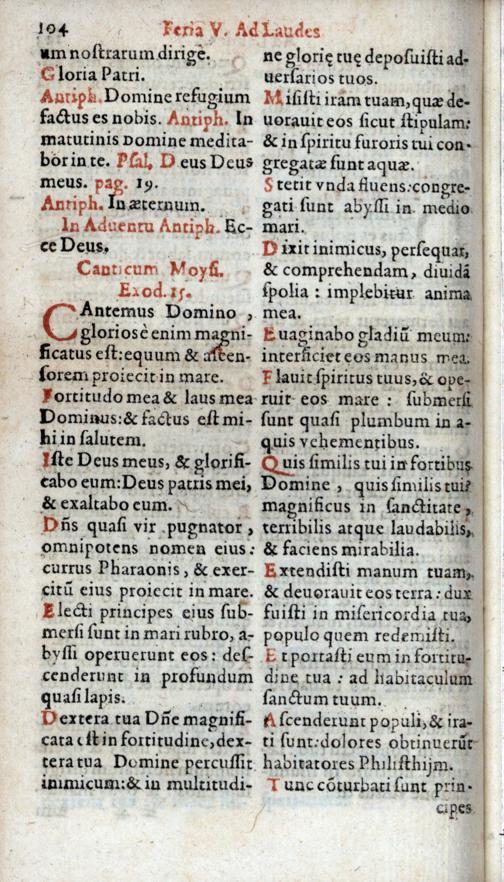 104 Feria V. Ad Laudes
um nostrarum dirigè.
Gloria Patri.
Antiph. Domine refugium
factus es nobis. Antiph. In
matutinis Domine medita-
bor in te. Psal. Deus Deus
meus. pag. 19.
Antiph. In æternum.
In Aduentu Antiph. Ec-
ce Deus.
Canticum Moysi.
Exod. 15.
CAntemus Domino ,
gloriosè enim magni-
ficatus est: equum & ascen-
sorem proiecit in mare.
Fortitudo mea & laus mea
Dominus: & factus est mi-
hi in salutem.
Iste Deus meus, & glorifi-
cabo eum: Deus patris mei,
& exaltabo eum.
Dñs quasi vir pugnator ,
omnipotens nomen eius :
currus Pharaonis , & exer-
citũ eius proiecit in mare.
Electi principes eius sub-
mersi sunt in mari rubro, a-
byssi operuerunt eos : des-
cenderunt in profundum
quasi lapis.
Dextera tua Dñe magnifi-
cata est in fortitudine, dex-
tera tua Domine percussit
inimicum: & in multitudi-
ne glorię tuę deposuisti ad-
uersarios tuos.
Misisti iram tuam, quæ de-
uorauit eos sicut stipulam:
& in spiritu furoris tui con-
gregatæ sunt aquæ.
Stetit vnda fluens: congre-
gati sunt abyssi in medio
mari.
Dixit inimicus, persequar,
& comprehendam, diuidã
spolia : implebitur anima
mea.
Euaginabo gladiũ meum:
interficiet eos manus mea.
Flauit spiritus tuus, & ope-
ruit eos mare : submersi
sunt quasi plumbum in a-
quis vehementibus.
Quis similis tui in fortibus
Domine , quis similis tui?
magnificus in sanctitate ,
terribilis atque laudabilis,
& faciens mirabilia.
Extendisti manum tuam,
& deuorauit eos terra : dux
fuisti in misericordia tua,
populo quem redemisti.
Et portasti eum in fortitu-
dine tua : ad habitaculum
sanctum tuum.
Ascenderunt populi, & ira-
ti sunt: dolores obtinuerũt
habitatores Philisthijm.
Tunc cõturbati sunt prin-
cipes